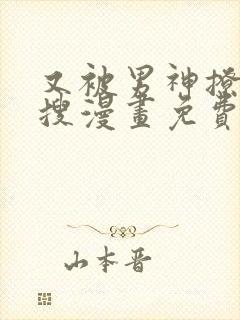 又被男神撩
搜漫畫免費
山本晉